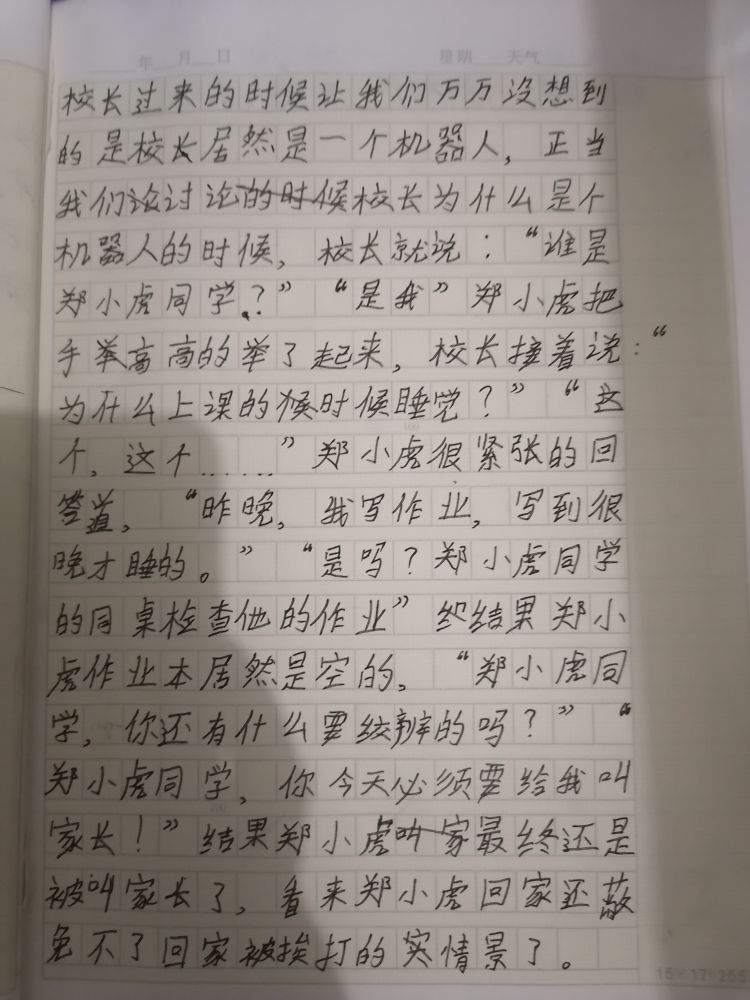 年 月 日 星期 天气
校长过来的时候让我们万万没想到
的是校长居然是一个机器人，正当
我们论讨论的时候校长为什么是个
机器人的时候，校长就说：“谁是
郑小虎同学？”“是我”郑小虎把
手举高高的举了起来，校长接着说：“
为什么上课的候时候睡觉？”“这
个，这个……”郑小虎很紧张的回
答道，“昨晚，我写作业，写到很
晚才睡的。”“是吗？郑小虎同学
的同桌检查他的作业”结果郑小
虎作业本居然是空的，“郑小虎同
学，你还有什么要狡辨的吗？”“
郑小虎同学，你今天必须要给我叫
家长！”结果郑小虎叫家最终还是
被叫家长了，看来郑小虎回家还
免不了回家被挨打的情景了。
15×17=255